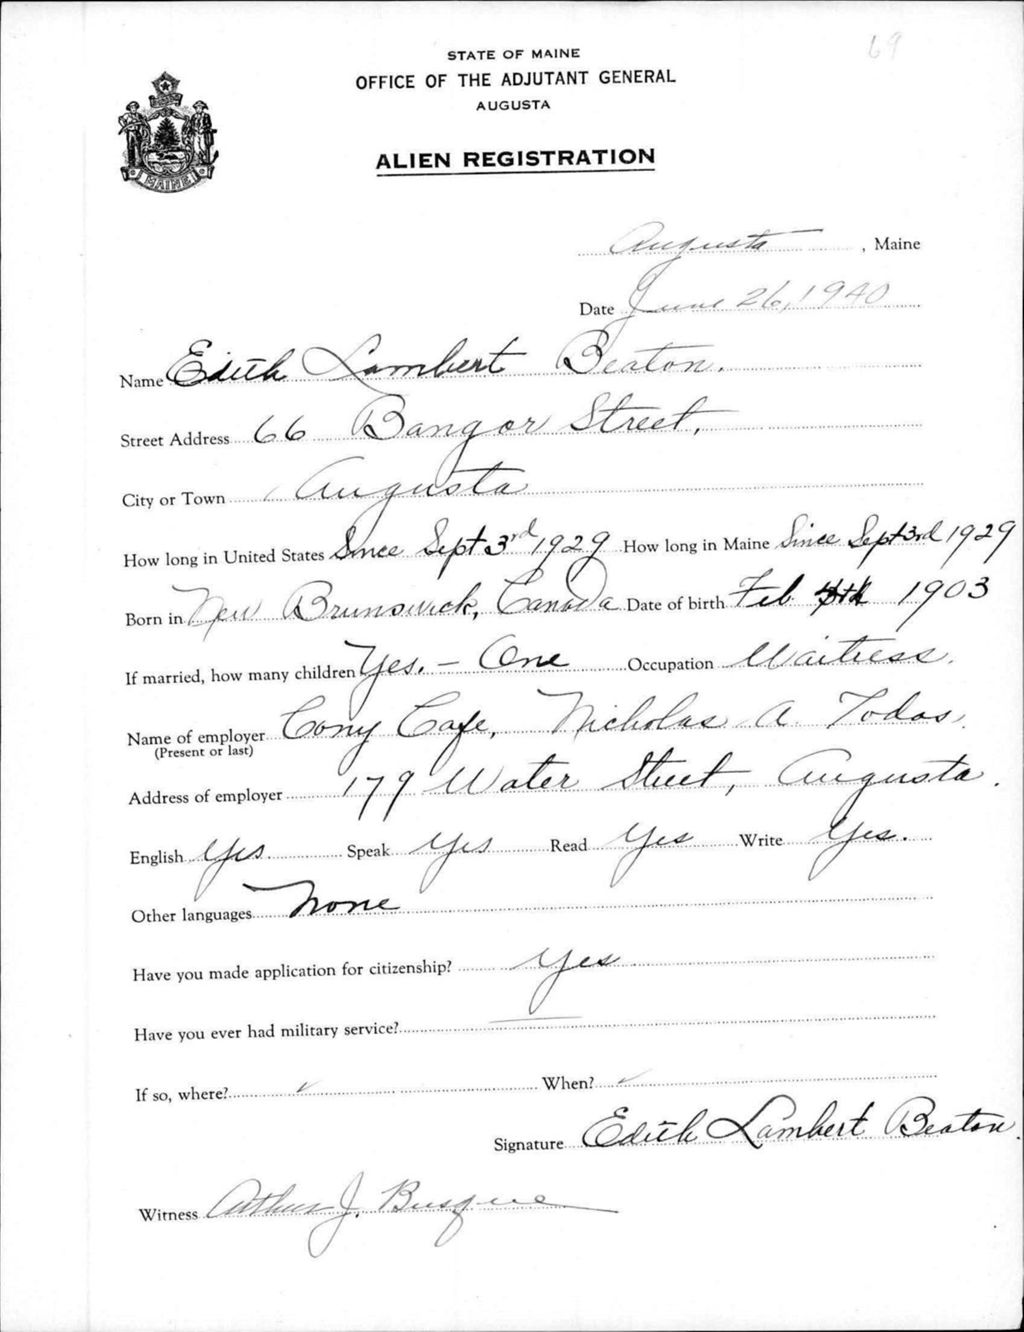 69
STATE OF MAINE
OFFICE OF THE ADJUTANT GENERAL
AUGUSTA
MAINE
ALIEN REGISTRATION
Augusta, Maine
Date June 26, 1940
Name Edith Lambert Beaton.
Street Address 66 Bangor Street,
City or Town Augusta
How long in United States Since Sept 3rd 1929 How long in Maine Since Sept 3rd 1929
Born in New Brunswick, Canada Date of birth Feb 1903
If married, how many children Yes. – One Occupation Waitress.
Name of employer Cony Cafe, Nicholas A Todas.
(Present or last)
Address of employer 179 Water Street, Augusta.
English Yes. Speak Yes Read Yes Write Yes.
Other languages None
Have you made application for citizenship? Yes
Have you ever had military service? —
If so, where? ✓ When? ✓
Signature Edith Lambert Beaton.
Witness Arthur J. Busque